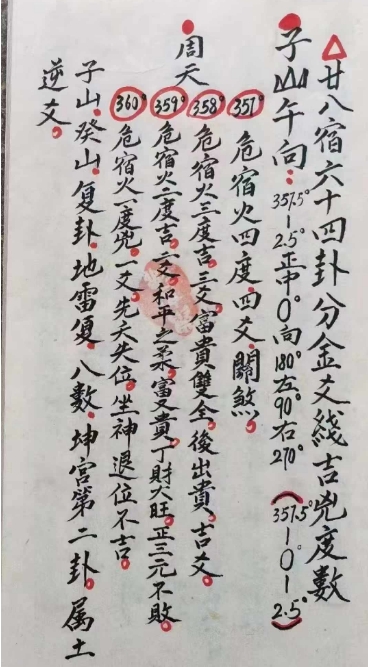 廿八宿六十四卦分金爻綫吉兇度數
子山午向:357.5°-2.5°正中0°向180°左90°右270° (357.5°-0°-2.5°)
周天
357°危宿火四度.四爻.關煞.
358°危宿火三度吉.三爻.富貴雙全.後出貴.吉爻.
359°危宿火二度吉.二爻.和平之柔.富又貴.丁財大旺.正三元不敗
360°危宿火一度兇.一爻.先夭失位.坐神退位不吉.
子山.癸山.复卦.地雷复.八數.坤宮第二卦.属土
逆爻.